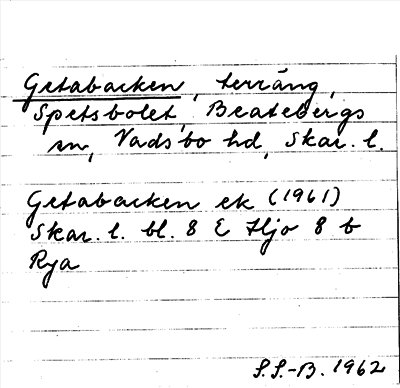 Getabacken, terräng,
Spetsbolet, Beatebergs
sn, Vadsbo hd, Skar. l.
Getabacken ek (1961)
Skar. l. bl. 8 E Hjo 8 b
Rya
S.S.-B. 1962